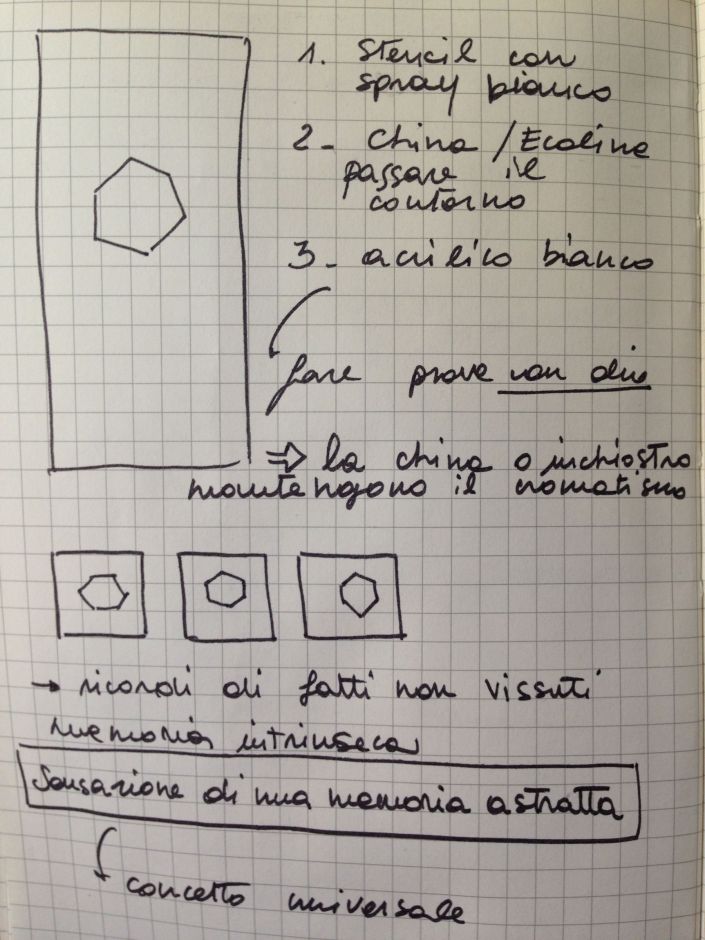 1. Stencil con
spray bianco
2- China / Ecoline
passare il
contorno
3- acrilico bianco
fare prove con
⇒ la china o inchiostro
mantengono il cromatismo
→ ricordi di fatti non vissuti
memoria intrinseca
Sensazione di una memoria astratta
concetto universale